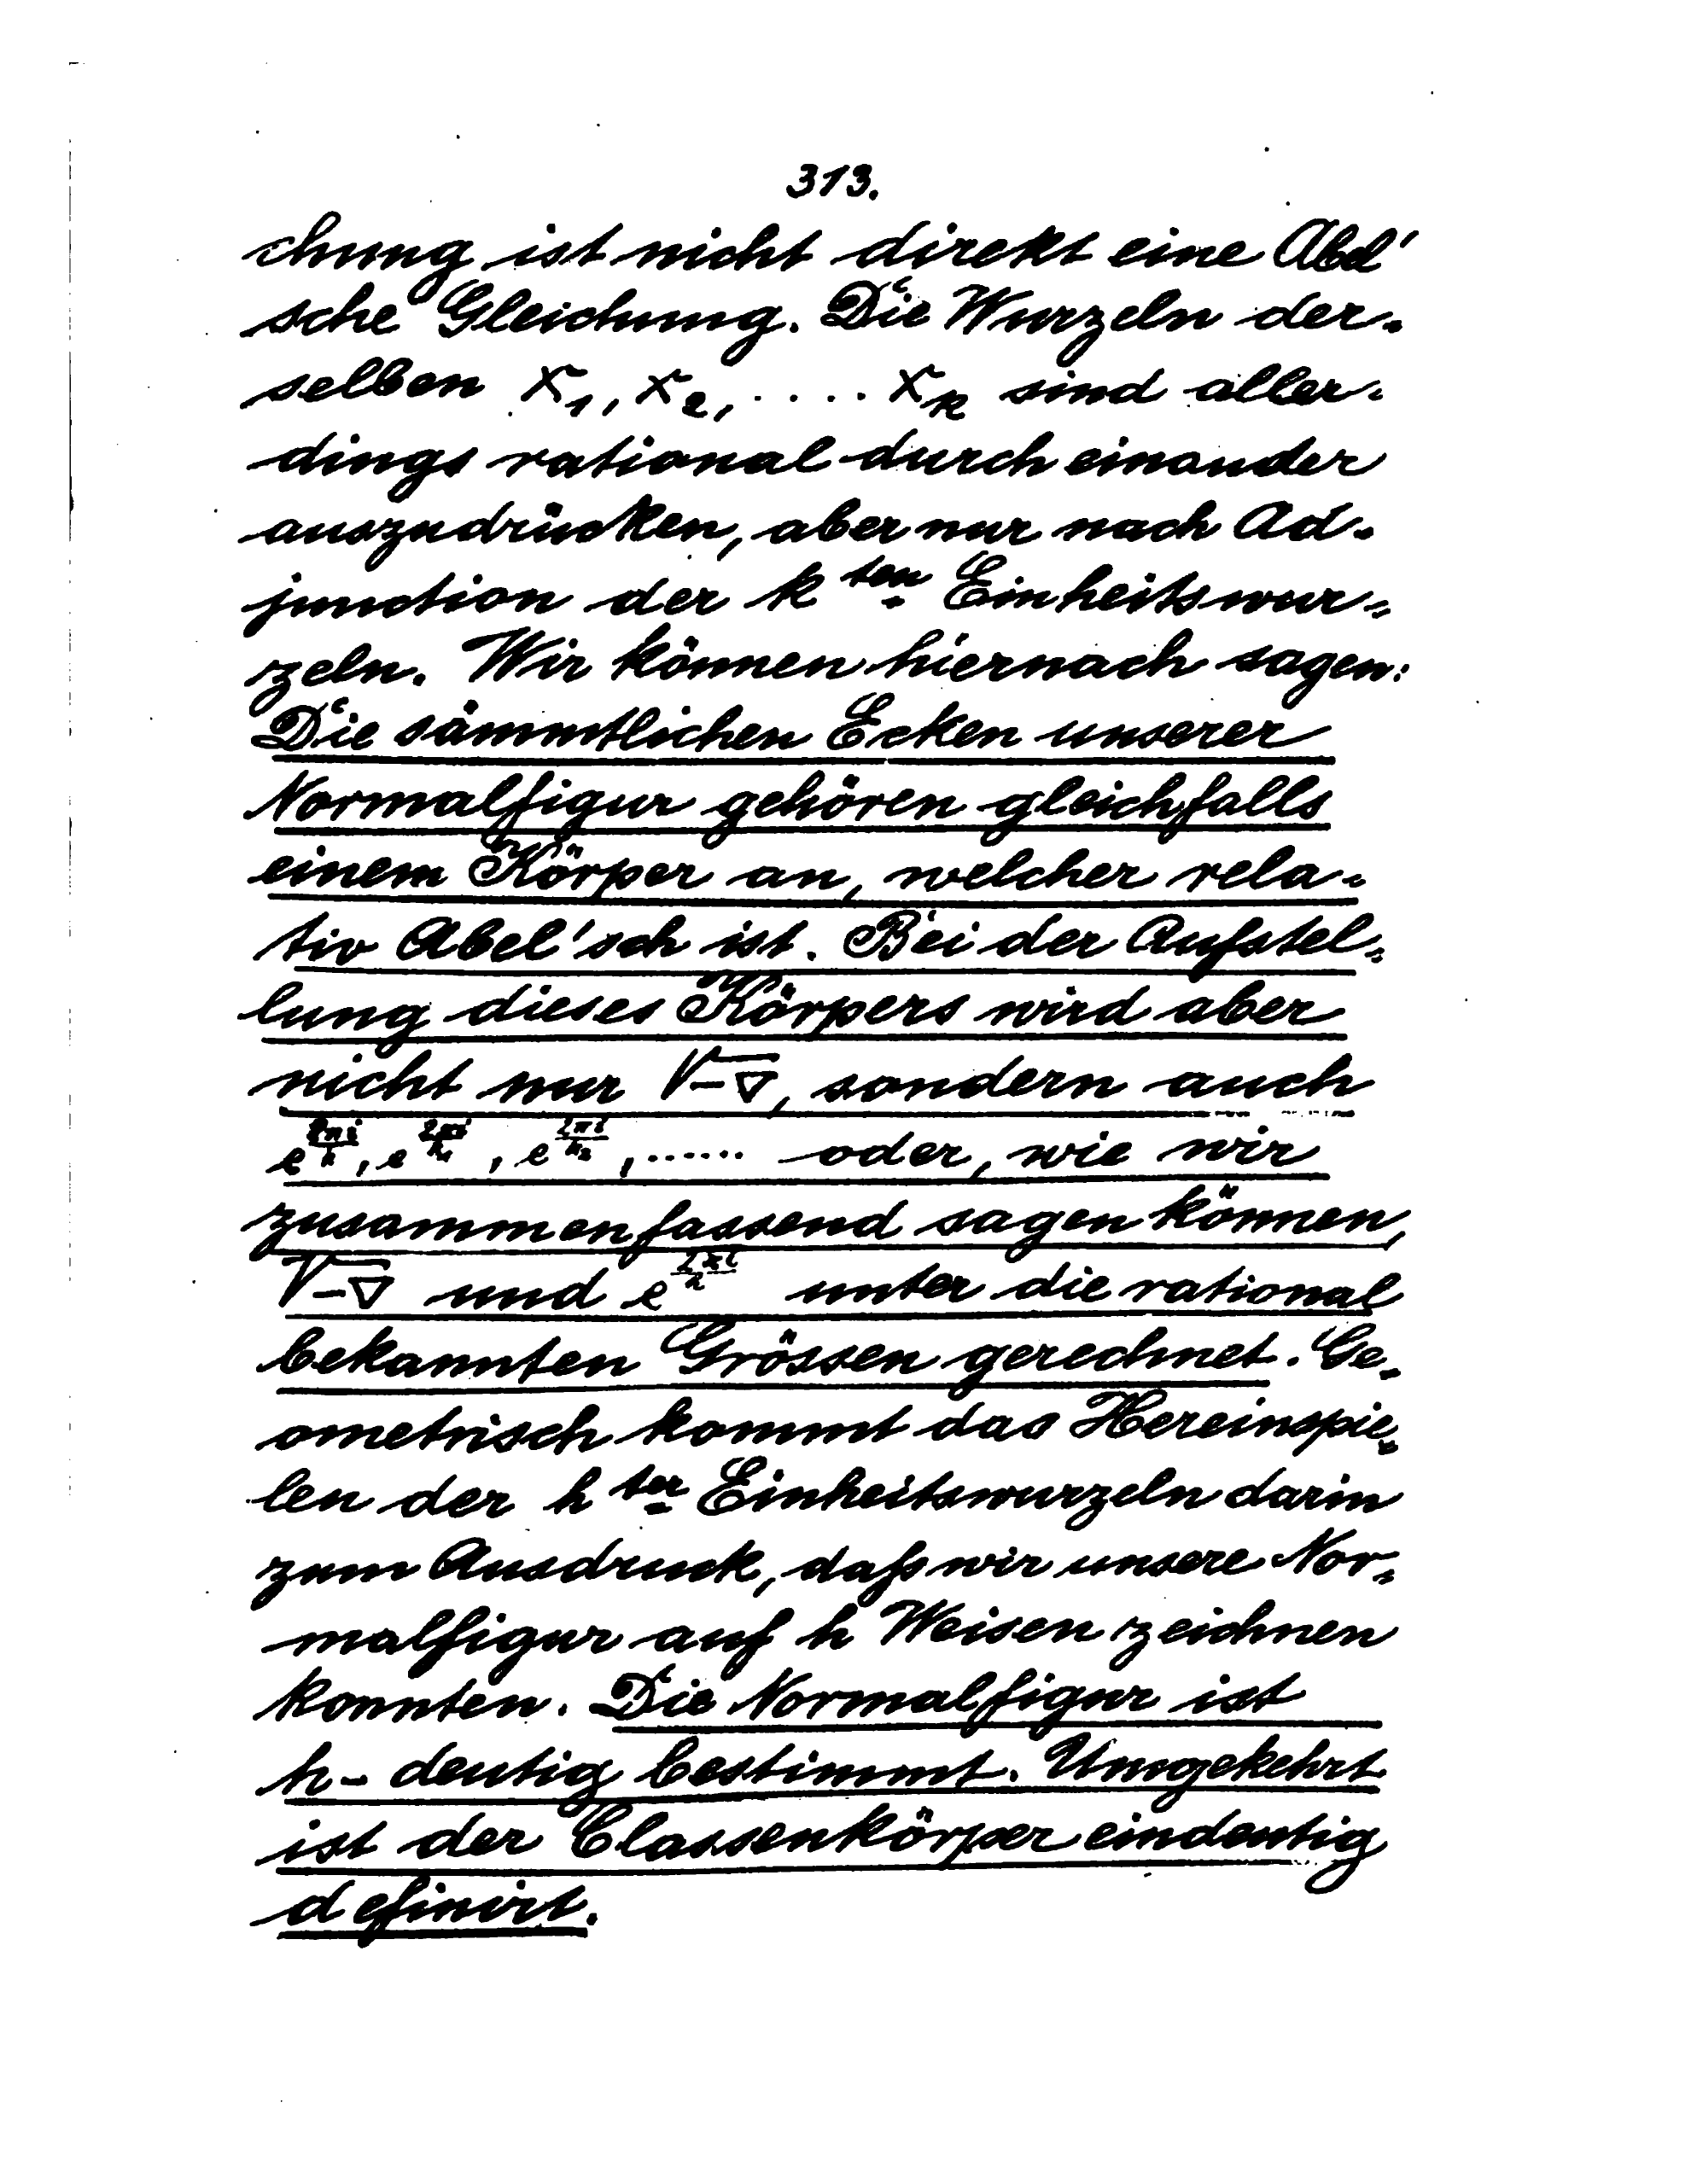 313.
chung ist nicht direkt eine Abel'
sche Gleichung. Die Wurzeln der-
selben x₁, x₂, .... xₖ sind aller-
dings rational durch einander
auszudrücken, aber nur nach Ad-
junction der k ten Einheitswur-
zeln. Wir können hiernach sagen:
Die sämmtlichen Ecken unserer
Normalfigur gehören gleichfalls
einem Körper an, welcher rela-
tiv Abel'sch ist. Bei der Aufstel-
lung dieses Körpers wird aber
nicht nur √-∇, sondern auch
e^(2πi/k), e^(2πi/k₁), e^(2πi/k₂), ...... oder, wie wir
zusammenfassend sagen können,
√-∇ und e^(2πi/h) unter die rational
bekannten Grössen gerechnet. Ge-
ometrisch kommt das Hereinspie-
len der h ter Einheitswurzeln darin
zum Ausdruck, daß wir unsere Nor-
malfigur auf h Weisen zeichnen
konnten. Die Normalfigur ist
h- deutig bestimmt. Umgekehrt
ist der Classenkörper eindeutig
definirt.